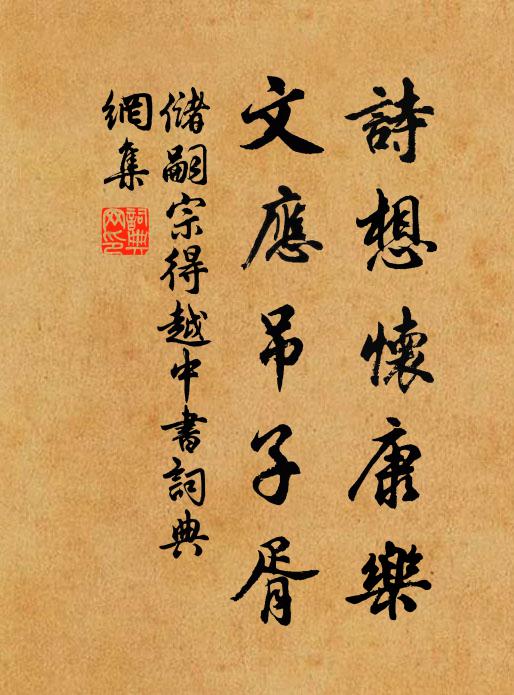 詩想懷康樂
文應吊子胥
儲嗣宗得越中書詞典
網集
詞典
网印